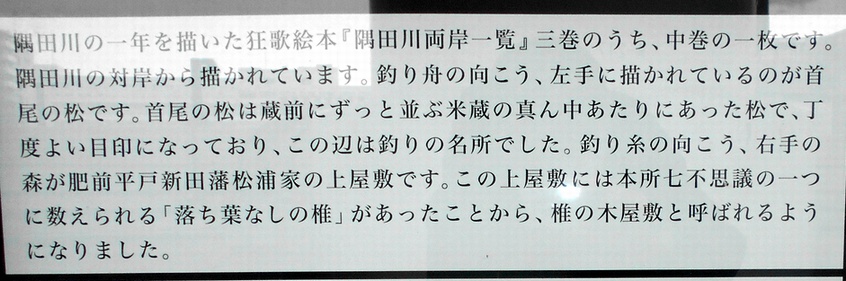 隅田川の一年を描いた狂歌絵本『隅田川両岸一覧』三巻のうち、中巻の一枚です。
隅田川の対岸から描かれています。釣り舟の向こう、左手に描かれているのが首
尾の松です。首尾の松は蔵前にずっと並ぶ米蔵の真ん中あたりにあった松で、丁
度よい目印になっており、この辺は釣りの名所でした。釣り糸の向こう、右手の
森が肥前平戸新田藩松浦家の上屋敷です。この上屋敷には本所七不思議の一つ
に数えられる「落ち葉なしの椎」があったことから、椎の木屋敷と呼ばれるよう
になりました。